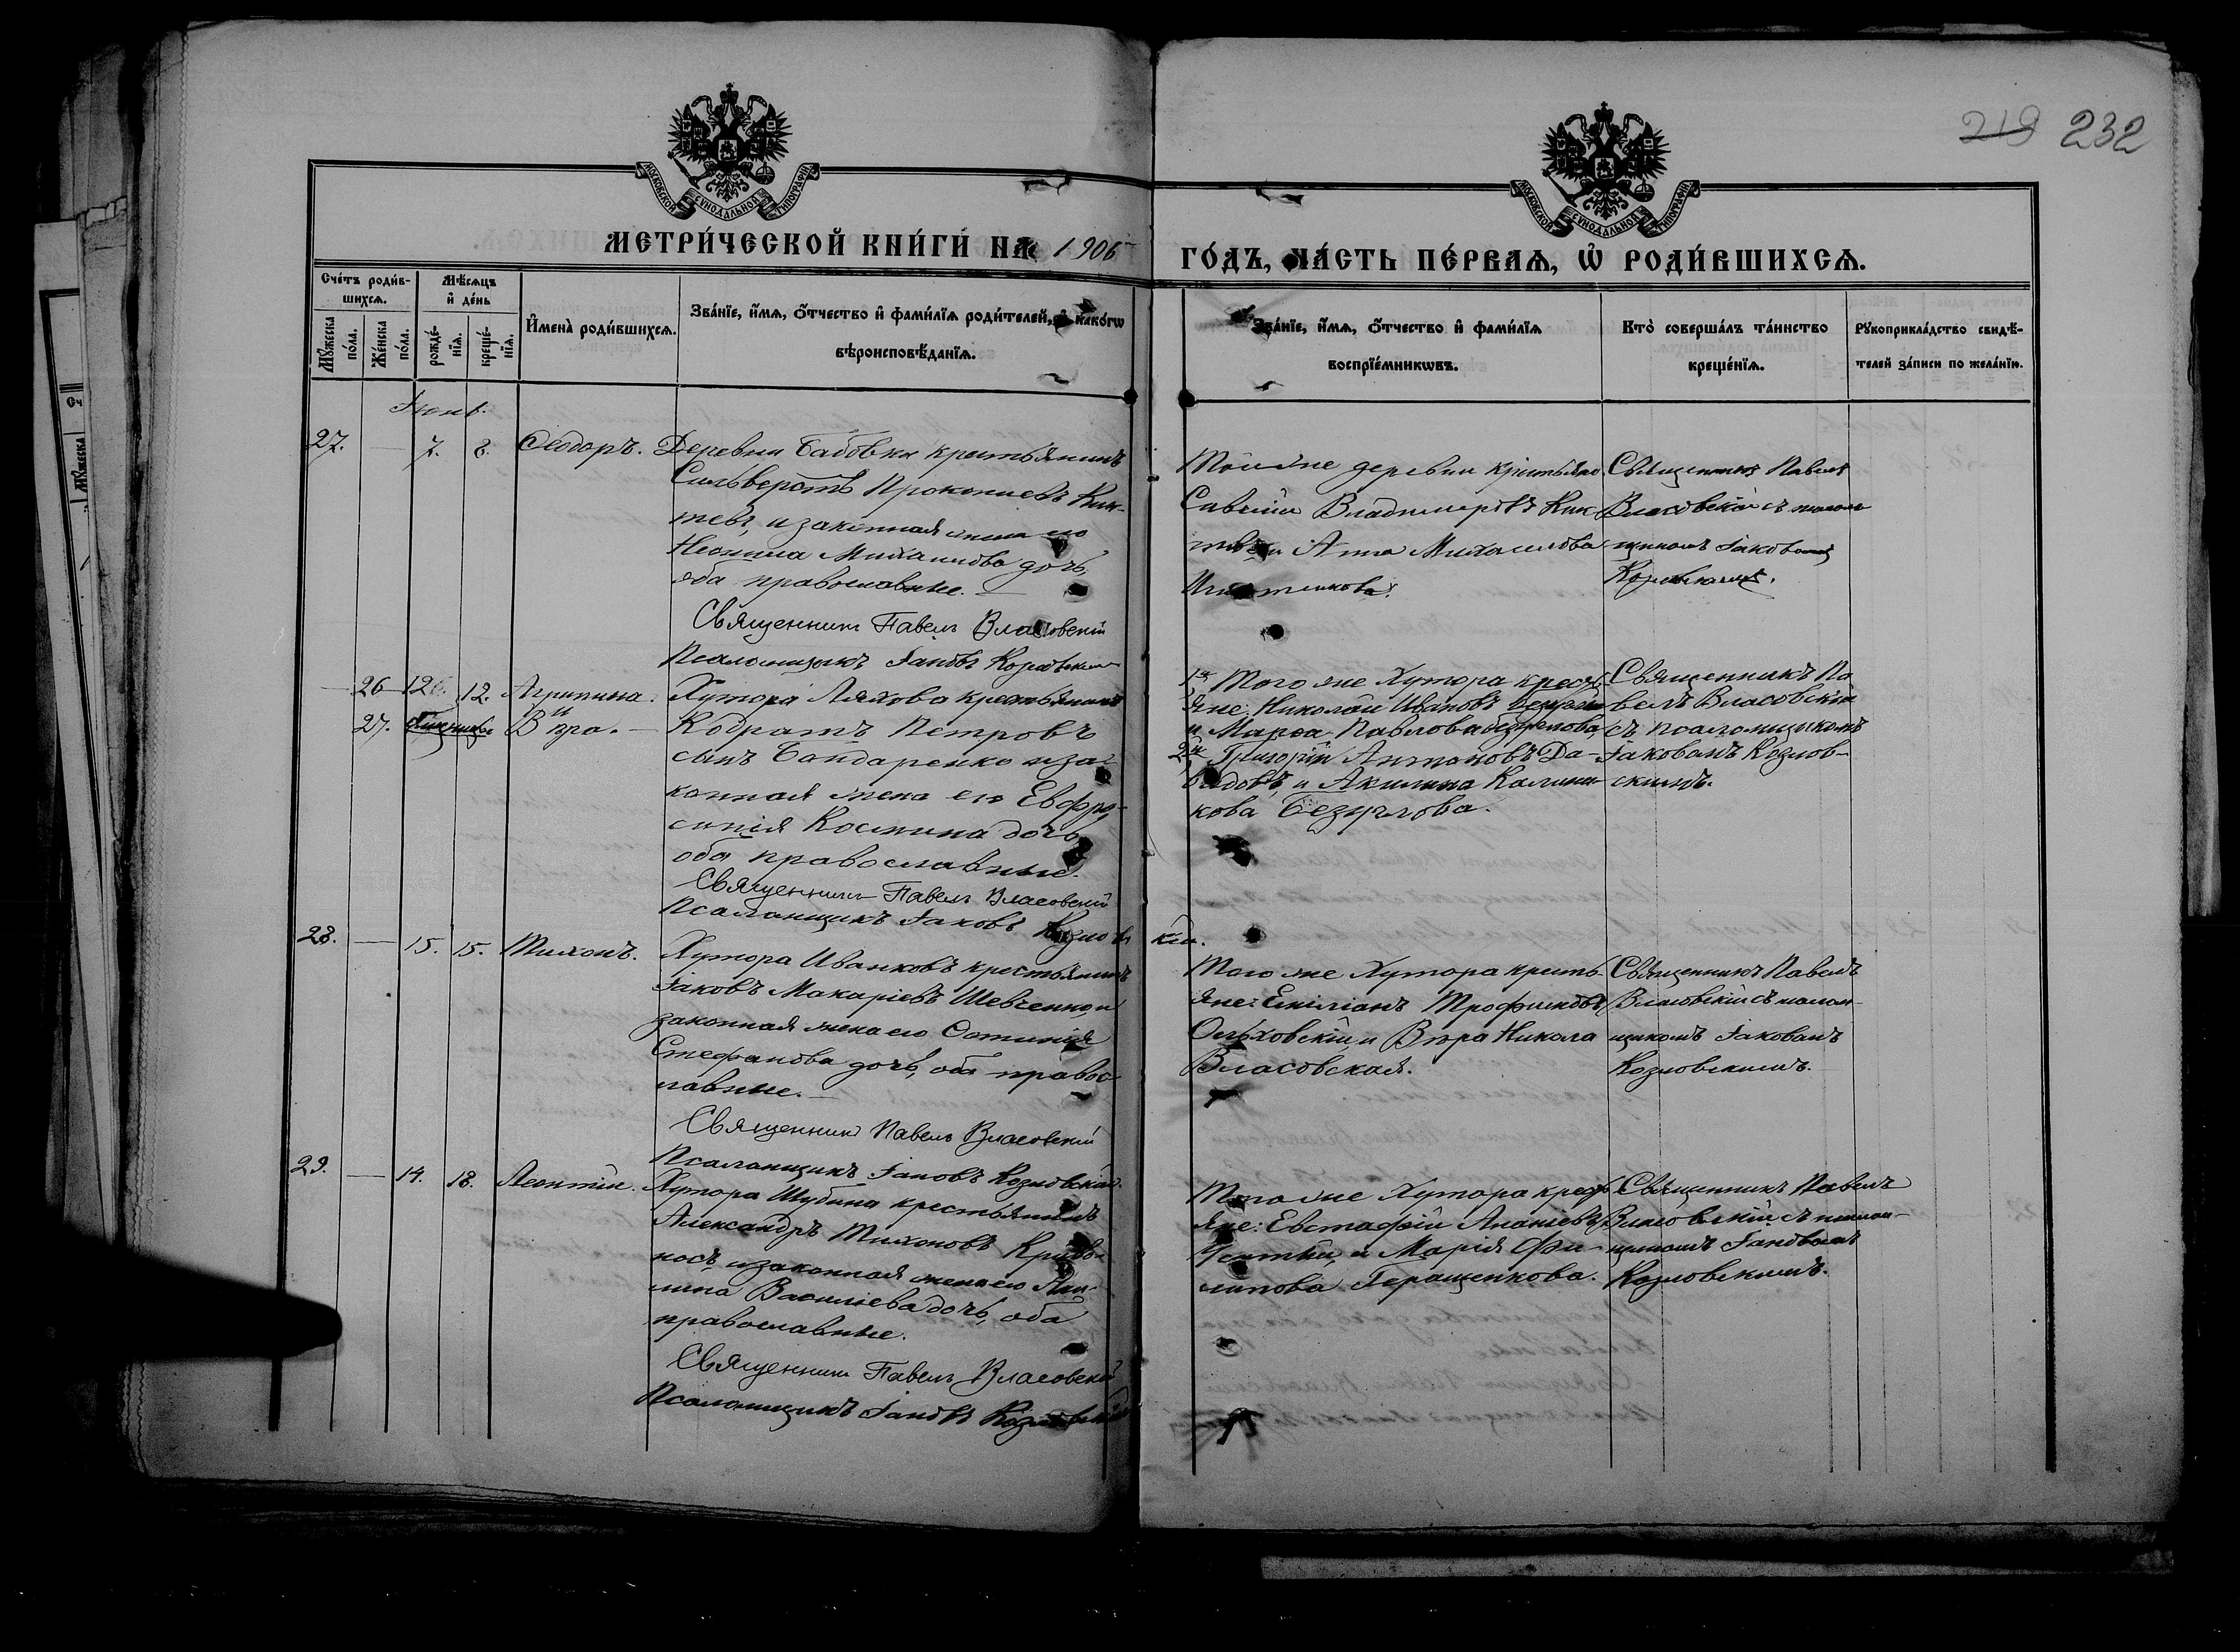 219 232
МОСКОВСКОЙ СУНОДАЛЬНОЙ ТИПОГРАФІИ
МОСКОВСКОЙ СУНОДАЛЬНОЙ ТИПОГРАФІИ
МЕТРИ́ЧЕСКОЙ КНИ́ГИ НА 1906
ГО́ДЪ, ЧА́СТЬ ПЕ́РВАЯ, Ѡ РОДИ́ВШИХСЯ.
Сче́тъ роди́в-
шихся.
Му́жеска
по́ла.
Же́нска
по́ла.
Мѣ́сяцъ
и де́нь
рожде́-
нія.
креще́-
нія.
Имена̀ роди́вшихся.
Зва́нїе, и́мя, ѻ́тчество и фами́лїя роди́телей, и како́гѡ
вѣроисповѣ́данїя.
Зва́нїе, и́мя, ѻ́тчество и фами́лїя
воспрїе́мникѡвъ.
Кто̀ соверша́лъ та́инство
креще́нїя.
Рꙋкоприкла́дство свидѣ́-
телей за́писи по жела́нїю.
Іюнь.
27. — 7. 8. Ѳеодоръ.
Деревни Бабовки крестьянинъ
Сильверстъ Прокопіевъ Кик-
тевъ, и законная жена его
Неонила Михаилова дочь,
оба православные.
Священникъ Павелъ Власовскій
Псаломщикъ Іаковъ Козловскій
Тойже деревни крестьяне
Савелій Владимировъ Кик-
тевъ и Анна Михаилова
Священникъ Павелъ
Власовскій съ псалом-
щикомъ Іаковомъ
Козловскимъ.
— 26 12. 12. Агрипина.
27. Близнецы и Вѣра. —
Хутора Ляхова крестьянинъ
Кодратъ Петровъ
сынъ Бондаренко и за-
конная жена его Евфро-
синія Космина дочь,
оба православные.
Священникъ Павелъ Власовскій
Псаломщикъ Іаковъ Козловскій.
1й Того же Хутора кресть-
яне: Николай Ивановъ
и Марѳа Павлова Безуглова,
2й Григорій Антоновъ Да-
выдовъ, и Акилина Калини-
кова Безуглова.
Священникъ Па-
велъ Власовскій
съ псаломщикомъ
Іаковомъ Козлов-
скимъ.
28. — 15. 15. Тихонъ.
Хутора Иванковъ крестьянинъ
Іаковъ Макаріевъ Шевченко, и
законная жена его Фотинія
Стефанова дочь, оба правос-
лавные.
Священникъ Павелъ Власовскій
Псаломщикъ Іаковъ Козловскій.
Того же Хутора кресть-
яне: Емиліанъ Трофимовъ
Ольховскій и Вѣра Никола
Власовская.
Священникъ Павелъ
Власовскій съ псалом-
щикомъ Іаковомъ
Козловскимъ.
29. — 14. 18. Леонтій.
Хутора Шубина крестьянинъ
Александръ Тихоновъ Криво-
носъ и законная жена его
Василіева дочь, оба
православные.
Священникъ Павелъ Власовскій
Псаломщикъ Іаковъ Козловскій
Того же Хутора кресть-
яне: Евстафій Ананіевъ
и Марія Фи-
липова Геращенкова.
Священникъ Павелъ
Власовскій съ псалом-
щикомъ Іаковомъ
Козловскимъ.